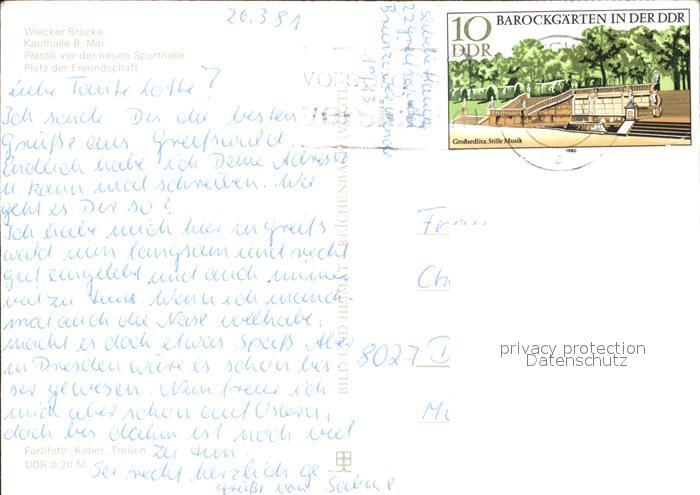 26.3.81
Wiecker Brücke
Kaufhalle 8. Mai
Plastik vor der neuen Sporthalle
Platz der Freundschaft
Liebe Tante Lotte!
Ich sende Dir die besten
Grüße aus Greifswald.
Endlich habe ich Deine Adresse
u. kann mal schreiben. Wie
geht es Dir so?
Ich habe mich hier in Greifs-
wald nun langsam und recht
gut eingelebt und auch immer
viel zu tun. Wenn ich manch-
mal auch die Nase vollhabe,
macht es doch etwas Spaß. Aber
in Dresden wäre es schon bes-
ser gewesen. Nun freue ich
mich aber schon auf Ostern,
doch bis dahin ist noch viel
zu tun.
Sei recht herzlich ge-
grüßt von Sabine
Farbfoto: Kober, Treuen
DDR 0,20 M
BILD UND HEIMAT REICHENBACH (VOGTL)
22 Greifswald
10 DDR
BAROCKGÄRTEN IN DER DDR
Großsedlitz, Stille Musik
1980
8027 D
privacy protection
Datenschutz